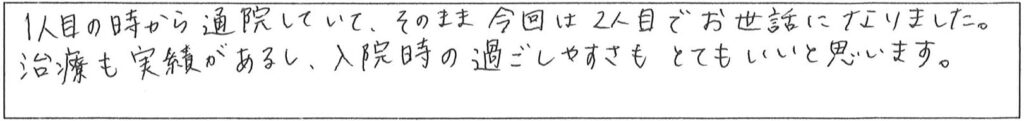 1人目の時から通院していて、そのまま今回は2人目でお世話になりました。
治療も実績があるし、入院時の過ごしやすさもとてもいいと思います。